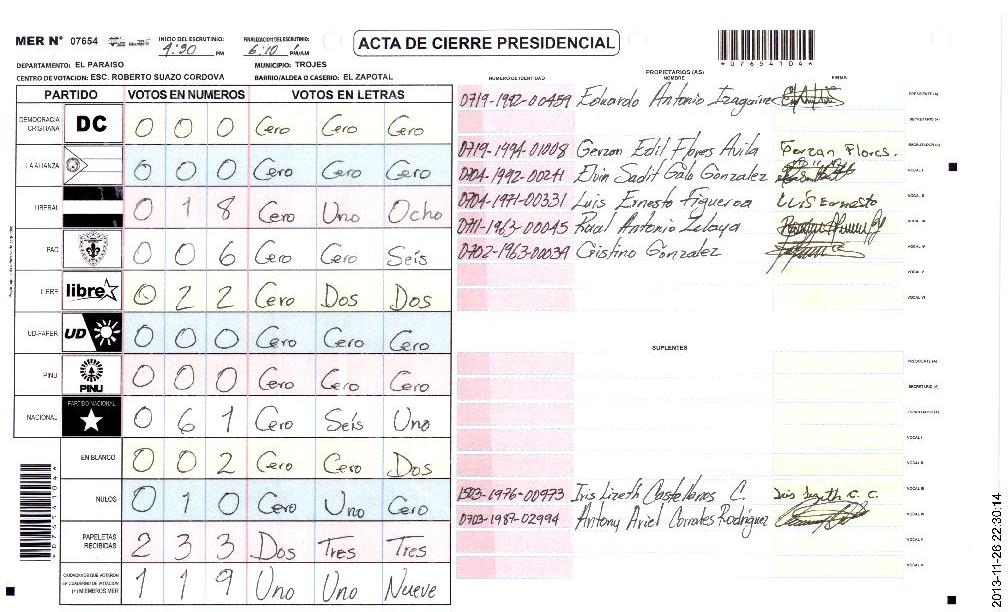 MER N° 07654 INICIO DEL ESCRUTINIO: 4:30 PM FINALIZACION DEL ESCRUTINIO: 6:10 PM/AM
ACTA DE CIERRE PRESIDENCIAL
*07654104*
DEPARTAMENTO: EL PARAISO MUNICIPIO: TROJES
CENTRO DE VOTACION: ESC. ROBERTO SUAZO CORDOVA BARRIO/ALDEA O CASERIO: EL ZAPOTAL
PARTIDO VOTOS EN NUMEROS VOTOS EN LETRAS
DEMOCRACIA CRISTIANA DC 0 0 0 Cero Cero Cero
LA ALIANZA 0 0 0 Cero Cero Cero
LIBERAL 0 1 8 Cero Uno Ocho
PAC 0 0 6 Cero Cero Seis
LIBRE libre 0 2 2 Cero Dos Dos
UD-FAPER UD 0 0 0 Cero Cero Cero
PINU PINU 0 0 0 Cero Cero Cero
NACIONAL PARTIDO NACIONAL 0 6 1 Cero Seis Uno
EN BLANCO 0 0 2 Cero Cero Dos
NULOS 0 1 0 Cero Uno Cero
PAPELETAS RECIBIDAS 2 3 3 Dos Tres Tres
CIUDADANOS QUE VOTARON S/P CUADERNO DE VOTACION (+) MIEMBROS MER 1 1 9 Uno Uno Nueve
*07654104*
PROPIETARIOS (AS)
NUMERO DE IDENTIDAD NOMBRE FIRMA
0719-1992-00459 Eduardo Antonio Izaguirre PRESIDENTE (A)
SECRETARIO (A)
0719-1994-01008 Gerzan Edil Flores Avila Gerzan Flores. ESCRUTADOR (A)
0704-1992-00211 Elvin Sadit Galo Gonzalez VOCAL I
0704-1971-00331 Luis Ernesto Figueroa LUIS Ernesto VOCAL II
0711-1963-00045 Raul Antonio Zelaya VOCAL III
0702-1963-00039 Cristino Gonzalez VOCAL IV
VOCAL V
VOCAL VI
SUPLENTES
PRESIDENTE (A)
SECRETARIO (A)
ESCRUTADOR (A)
VOCAL I
VOCAL II
1503-1976-00973 Iris Lizeth Castellanos C. Iris Lizeth C. C. VOCAL III
0703-1987-02994 Antony Ariel Corrales Rodriguez VOCAL IV
VOCAL V
VOCAL VI
2013-11-26 22:30:14